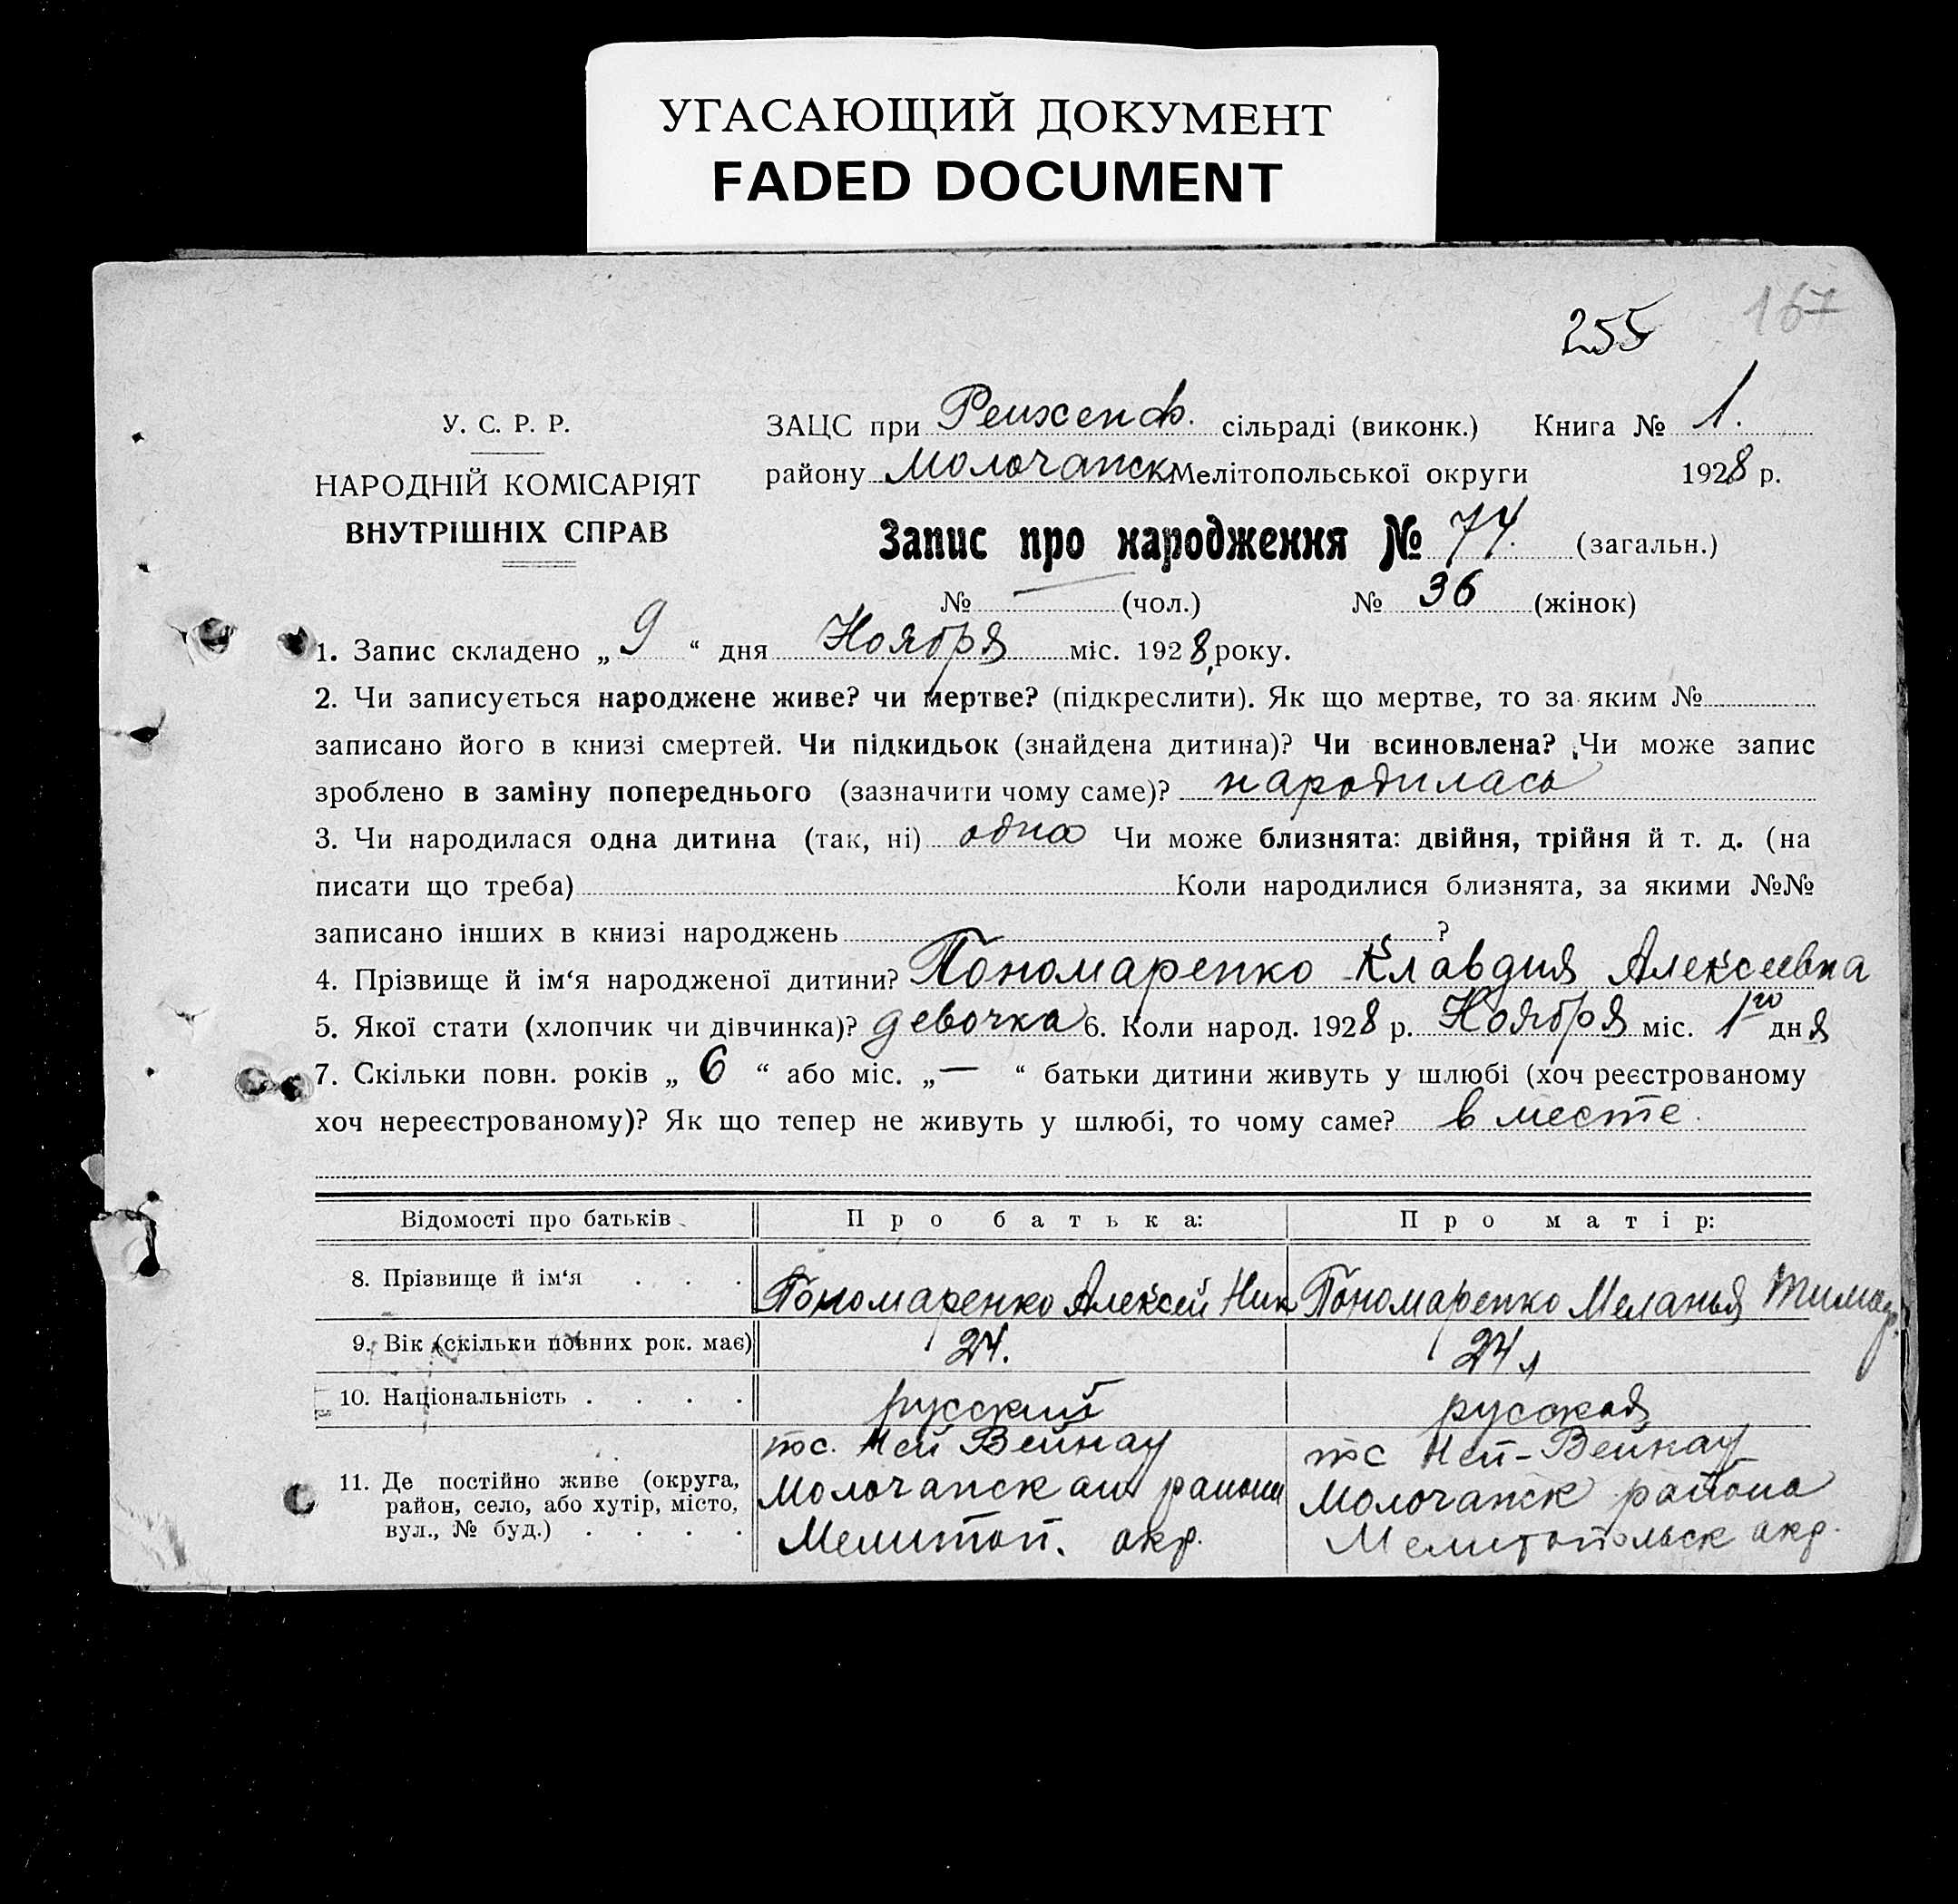 УГАСАЮЩИЙ ДОКУМЕНТ
FADED DOCUMENT
255 167
У. С. Р. Р.
НАРОДНІЙ КОМІСАРІЯТ
ВНУТРІШНІХ СПРАВ
ЗАЦС при Рейхенф. сільраді (виконк.) Книга № 1.
району Молочанск Мелітопольської округи 1928 р.
Запис про народження № 74. (загальн.)
№ — (чол.) № 36 (жінок)
1. Запис складено „ 9 “ дня Ноября міс. 1928 року.
2. Чи записується народжене живе? чи мертве? (підкреслити). Як що мертве, то за яким №
записано його в книзі смертей. Чи підкидьок (знайдена дитина)? Чи всиновлена? Чи може запис
зроблено в заміну попереднього (зазначити чому саме)? народилась
3. Чи народилася одна дитина (так, ні) одна Чи може близнята: двійня, трійня й т. д. (на
писати що треба) Коли народилися близнята, за якими №№
записано інших в книзі народжень ?
4. Прізвище й ім‘я народженої дитини? Пономаренко Клавдия Алексеевна
5. Якої стати (хлопчик чи дівчинка)? девочка 6. Коли народ. 1928 р. Ноября міс. 1го дня
7. Скільки повн. років „ 6 “ або міс. „ — “ батьки дитини живуть у шлюбі (хоч реєстрованому
хоч нереєстрованому)? Як що тепер не живуть у шлюбі, то чому саме? вместе.
Відомості про батьків Про батька: Про матір:
8. Прізвище й ім‘я . . . Пономаренко Алексей Ник Пономаренко Меланья
9. Вік (скільки повних рок. має) 24. 24
10. Національність . . . . русский русская
11. Де постійно живе (округа, район, село, або хутір, місто, вул., № буд.) . . . .
Ней Вейнау
Молочанск района
Мелитоп. окр.
Ней-Вейнау
Молочанск района
Мелитопольск окр.